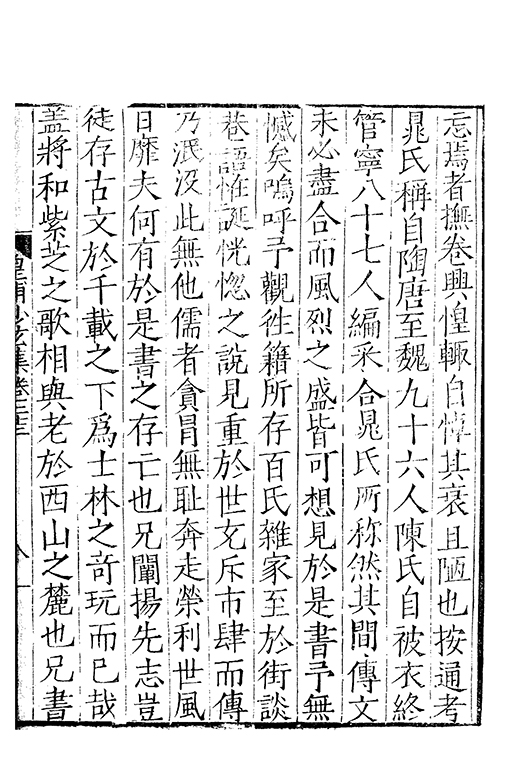 忘焉者撫卷興惶輙自悼其衰且陋也按通考
晁氏稱自陶唐至魏九十六人陳氏自被衣終
管寧八十七人編采合晁氏所称然其間傳文
未必盡合而風烈之盛皆可想見於是書予無
憾矣嗚呼予觀徃籍所存百氏雜家至於街談
巷語恠誕恍惚之說見重於世充斥市肆而傳
乃泯没此無他儒者貪冐無耻奔走榮利世風
日靡夫何有於是書之存亡也兄闡揚先志豈
徒存古文於千載之下爲士林之竒玩而已哉
盖將和紫芝之歌相與老於西山之麓也兄書
皇甫少玄集卷二十三